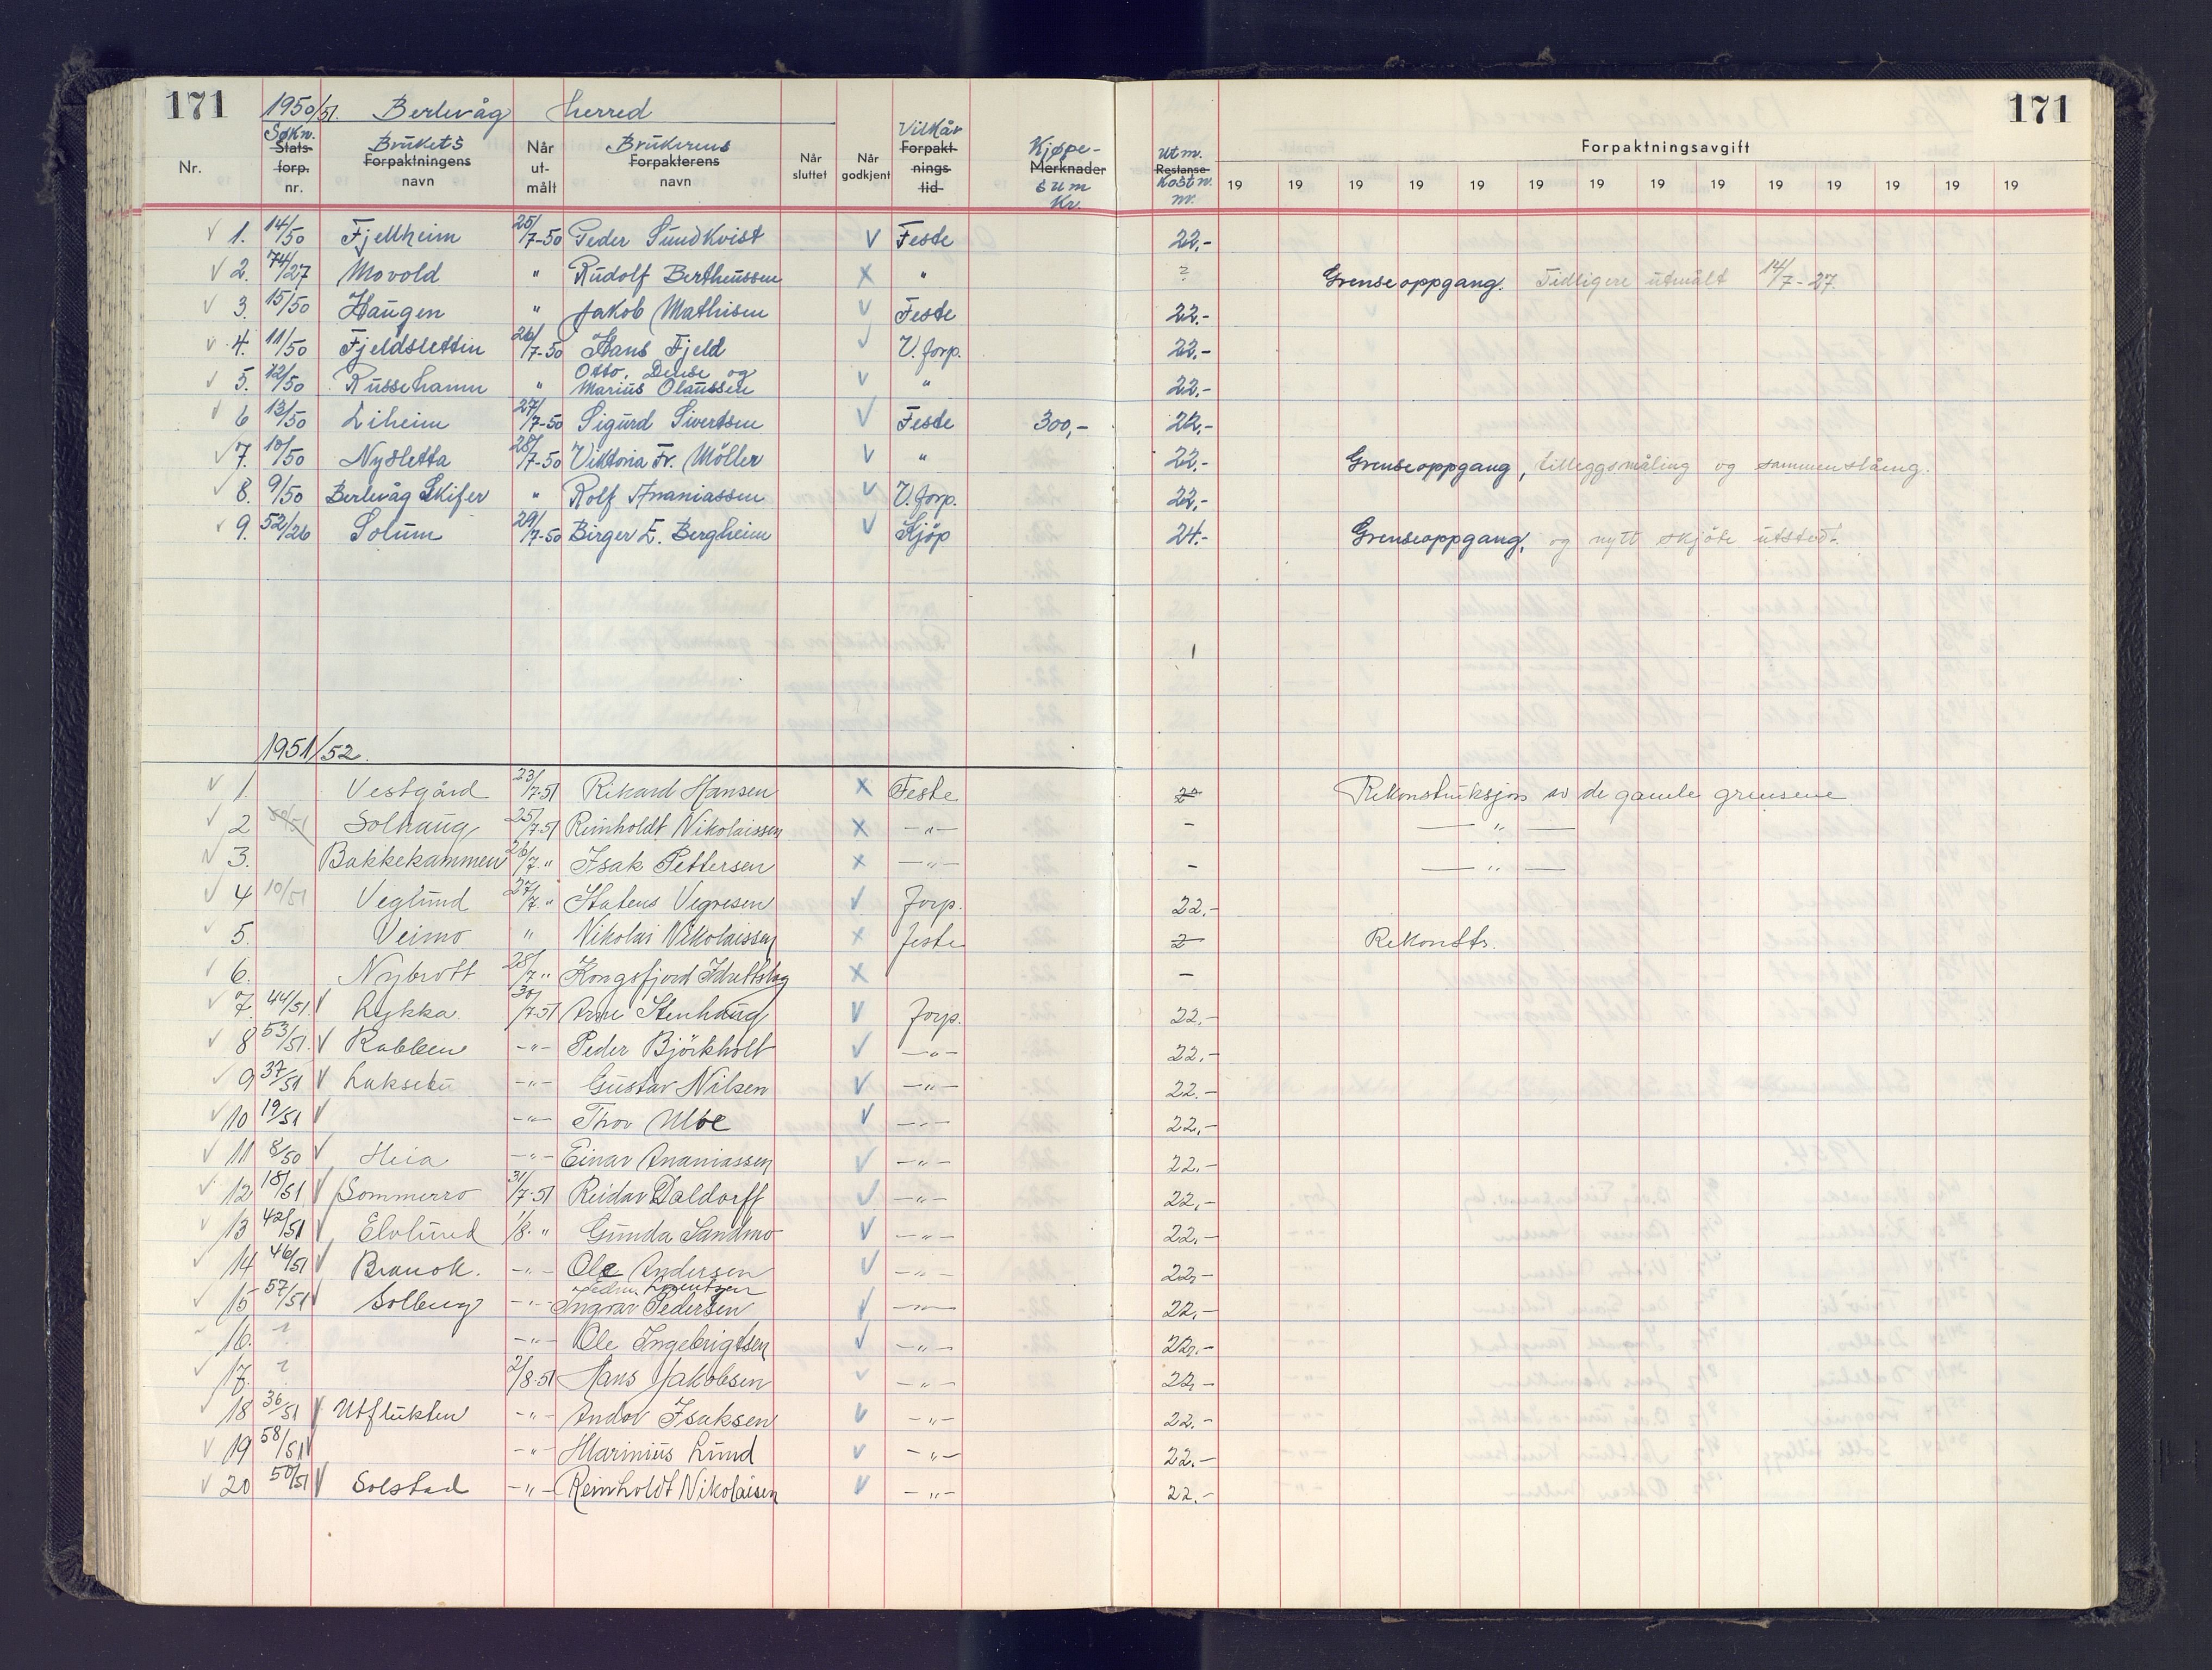 171 1950/51. Berlevåg herred 171
Nr. Søkn. Stats-forp. nr. Brukets Forpaktningens navn Når ut-målt Brukerens Forpakterens navn Når sluttet Når godkjent Vilkår Forpakt-nings-tid Kjøpe- Merknader sum Kr. Utm. Restanse Kostn. nr. Forpaktningsavgift
19 19 19 19 19 19 19 19 19 19 19 19 19 19
√ 1. 14/50 Fjellheim 25/7-50 Peder Sundkvist V Feste 22,-
√ 2. 74/27 Movold " Rudolf Bertheussen X " ? Grenseoppgang. Tidligere utmålt 14/7-27.
√ 3. 15/50 Haugen " Jakob Mathisen V Feste 22.-
√ 4. 11/50 Fjeldsletten 26/7-50 Hans Fjeld √ V. forp. 22.-
√ 5. 12/50 Russehamn " Otto, Dense og Marius Olaussen V " 22.-
√ 6 13/50 Liheim 27/7-50 Sigurd Sivertsen V Feste 300,- 22,-
√ 7. 10/50 Nysletta 28/7-50 Viktoria Fr. Möller V " 22.- Grenseoppgang, tilleggsmåling og sammenslåing.
√ 8. 9/50 Berlevåg Skifer " Rolf Ananiassen V V. forp. 22,-
√ 9. 52/26 Solum 29/7-50 Birger E. Bergheim V Kjöp 24.- Grenseoppgang, og nytt skjöte utsted.
1951/52.
√ 1. Vestgård 23/7-51 Rikard Hansen X Feste Rekonstruksjon av de gamle grensene
√ 2 50/51 Solhaug 25/7-51 Reinholdt Nikolaissen X -"- - -"-
√ 3. Bakkekammen 26/7 " Isak Pettersen X -"- - -"-
√ 4 10/51 Veglund 27/7. " Statens Vegvesen √ Forp. 22,-
√ 5. Veimo " Nikolai Nikolaissen X feste 2 Rekonstr.
√ 6. Nybrott 28/7 " Kongsfjord Idrettslag X -
√ 7. 44/51. V Lykka 30/7-51 Arne Stenhaug V Forp. 22,-
√ 8 53/51. V Rabben -"- Peder Björkholt √ -"- 22,-
√ 9 37/51 V Laksebu -"- Gustav Nilsen V -"- 22.-
√ 10 19/51 V -"- Thor Moe V -"- 22,-
√ 11 8/50 V Heia -"- Einar Ananiassen V -"- 22.-
√ 12 18/51 V Sommerro 31/7-51 Reidar Daldorff √ -"- 22,-
√ 13 42/51 V Elvlund 1/8. " Gunda Sandmo V -"- 22.-
√ 14 46/51 V Brauok. -"- Ole Andersen √ -"- 22,-
√ 15 57/51 V Solberg -"- Ingvar Pedersen √ -"- 22.-
16. ? -"- Ole Ingebrigtsen √ -"- 22,-
√ 17. ? 2/8-51 Hans Jakobsen √ -"- 22,-
√ 18 36/51 V Utflukten -"- Andor Isaksen V -"- 22.-
√ 19 58/51 V -"- Marinius Lund V -"- 22.-
√ 20 50/51 V Solstad -"- Reinholdt Nikolaisen V -"- 22.-